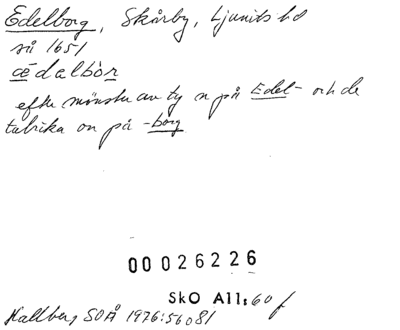 Edelborg, Skårby, Ljunits hd
så 1651
œ̄dalbòr
efter mönster av ty n på Edel- och de
talrika on på -borg
00 026226
SkO All:60 f
Hallberg SOÅ 1976:56 o 81